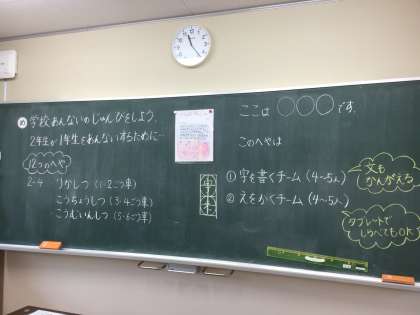 め 学校あんないのじゅんびをしよう。
2年生が1年生をあんないするために…
12つのへや
2-4 りかしつ(1・2ごう車)
こうちょうしつ(3・4ごう車)
こうむいんしつ(5・6ごう車)
ここは○○○です。
このへやは
① 字を書くチーム(4〜5人)
② えをかくチーム(4〜5人)
文も
かんがえる
タブレットで
しらべてもOK